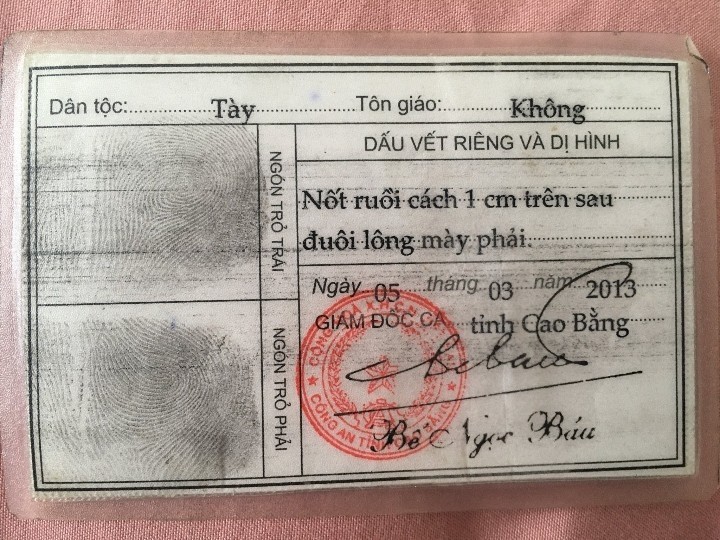 Dân tộc: Tày Tôn giáo: Không
NGÓN TRỎ TRÁI
NGÓN TRỎ PHẢI
DẤU VẾT RIÊNG VÀ DỊ HÌNH
Nốt ruồi cách 1 cm trên sau
đuôi lông mày phải.
Ngày 05 tháng 03 năm 2013
GIÁM ĐỐC CA tỉnh Cao Bằng
CÔNG AN TỈNH
Bế Ngọc Báu